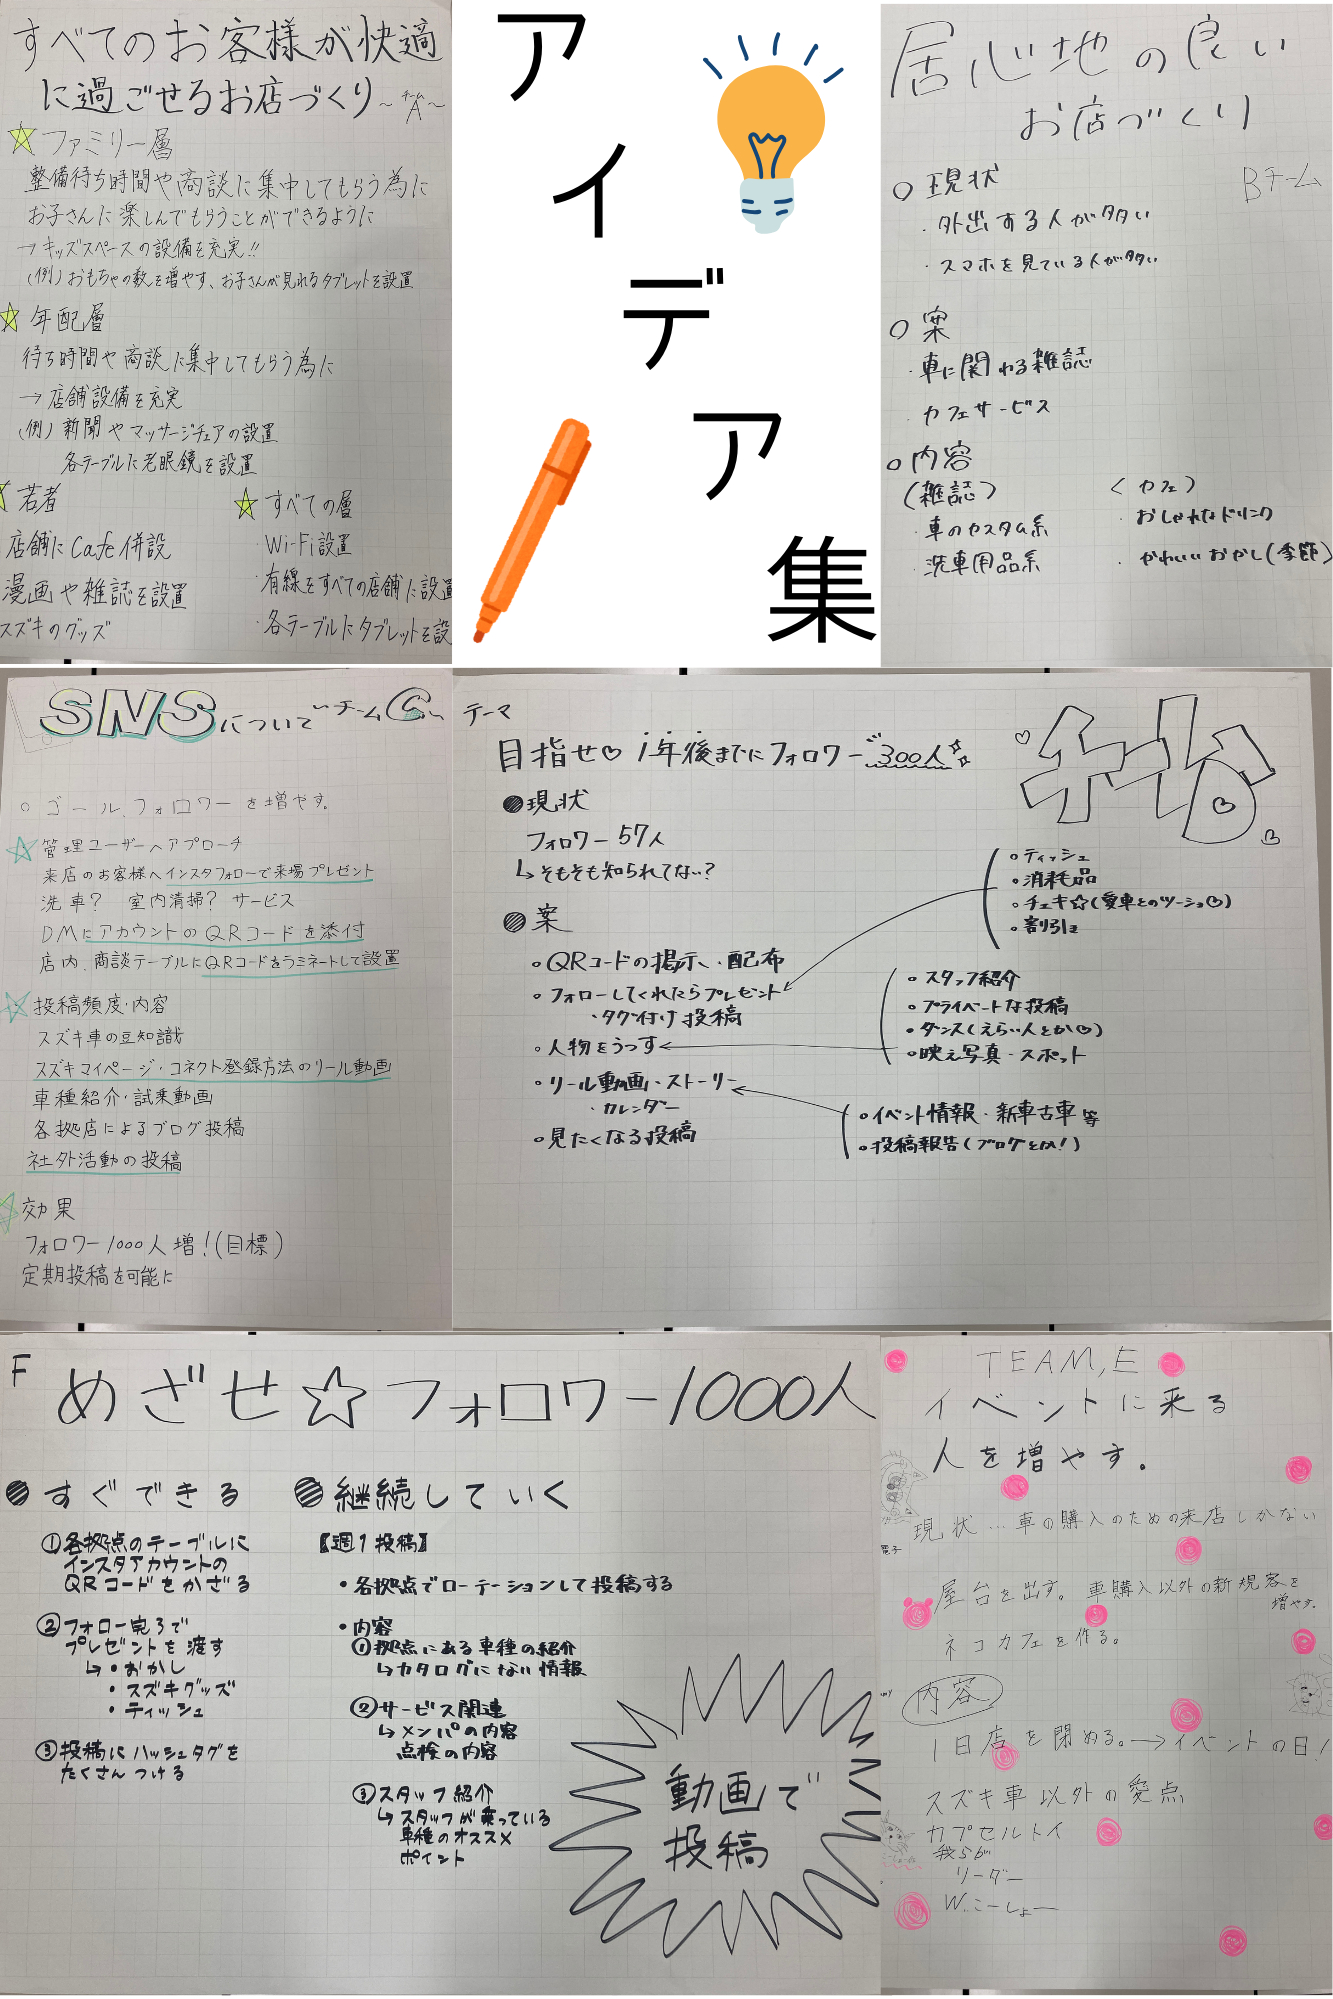 すべてのお客様が快適
に過ごせるお店づくり〜チームA〜
ファミリー層
整備待ち時間や商談に集中してもらう為に
お子さんに楽しんでもらうことができるように
→キッズスペースの設備を充実!!
(例)おもちゃの数を増やす、お子さんが見れるタブレットを設置
年配層
待ち時間や商談に集中してもらう為に
→店舗設備を充実
(例)新聞やマッサージチェアの設置
各テーブルに老眼鏡を設置
若者
店舗にCafe併設
漫画や雑誌を設置
スズキのグッズ
すべての層
・Wi-Fi設置
・有線をすべての店舗に設置
・各テーブルにタブレットを設
アイデア集
居心地の良い
お店づくり
Bチーム
○現状
・外出する人が多い
・スマホを見ている人が多い
○案
・車に関わる雑誌
・カフェサービス
○内容
(雑誌)
・車のカスタム系
・洗車用品系
(カフェ)
・おしゃれなドリンク
・かわいいおかし(季節)
SNSについて〜チームC〜
○ゴール、フォロワーを増やす。
☆管理ユーザーへアプローチ
来店のお客様へインスタフォローで来場プレゼント
洗車? 室内清掃? サービス
DMにアカウントのQRコードを添付
店内、商談テーブルにQRコードをラミネートして設置
☆投稿頻度・内容
スズキ車の豆知識
スズキマイページ・コネクト登録方法のリール動画
車種紹介・試乗動画
各拠店によるブログ投稿
社外活動の投稿
☆効果
フォロワー1000人増!(目標)
定期投稿を可能に
テーマ
目指せ♡1年後までにフォロワー300人
チームD
●現状
フォロワー57人
↳そもそも知られてない?
●案
○QRコードの掲示、配布
○フォローしてくれたらプレゼント
・タグ付け投稿
○人物をうつす
○リール動画、ストーリー
・カレンダー
○見たくなる投稿
○ティッシュ
○消耗品
○チェキ☆(愛車とのツーショ♡)
○割引き
○スタッフ紹介
○プライベートな投稿
○ダンス(えらい人とか♡)
○映え写真・スポット
○イベント情報・新車古車等
○投稿報告(ブログとか!)
F
めざせ☆フォロワー1000人
●すぐできる
①各拠点のテーブルに
インスタアカウントの
QRコードをかざる
②フォロー完了で
プレゼントを渡す
↳・おかし
・スズキグッズ
・ティッシュ
③投稿にハッシュタグを
たくさんつける
●継続していく
【週1投稿】
・各拠点でローテーションして投稿する
・内容
①拠点にある車種の紹介
↳カタログにない情報
②サービス関連
↳メンパの内容
点検の内容
③スタッフ紹介
↳スタッフが乗っている
車種のオススメ
ポイント
動画で
投稿
TEAM,E
イベントに来る
人を増やす。
現状…車の購入のための来店しかない
屋台を出す。車購入以外の新規客を
増やす。
ネコカフェを作る。
内容
1日店を閉める。→イベントの日!
スズキ車以外の愛点
カプセルトイ
我らが
リーダー
W.こーしょー